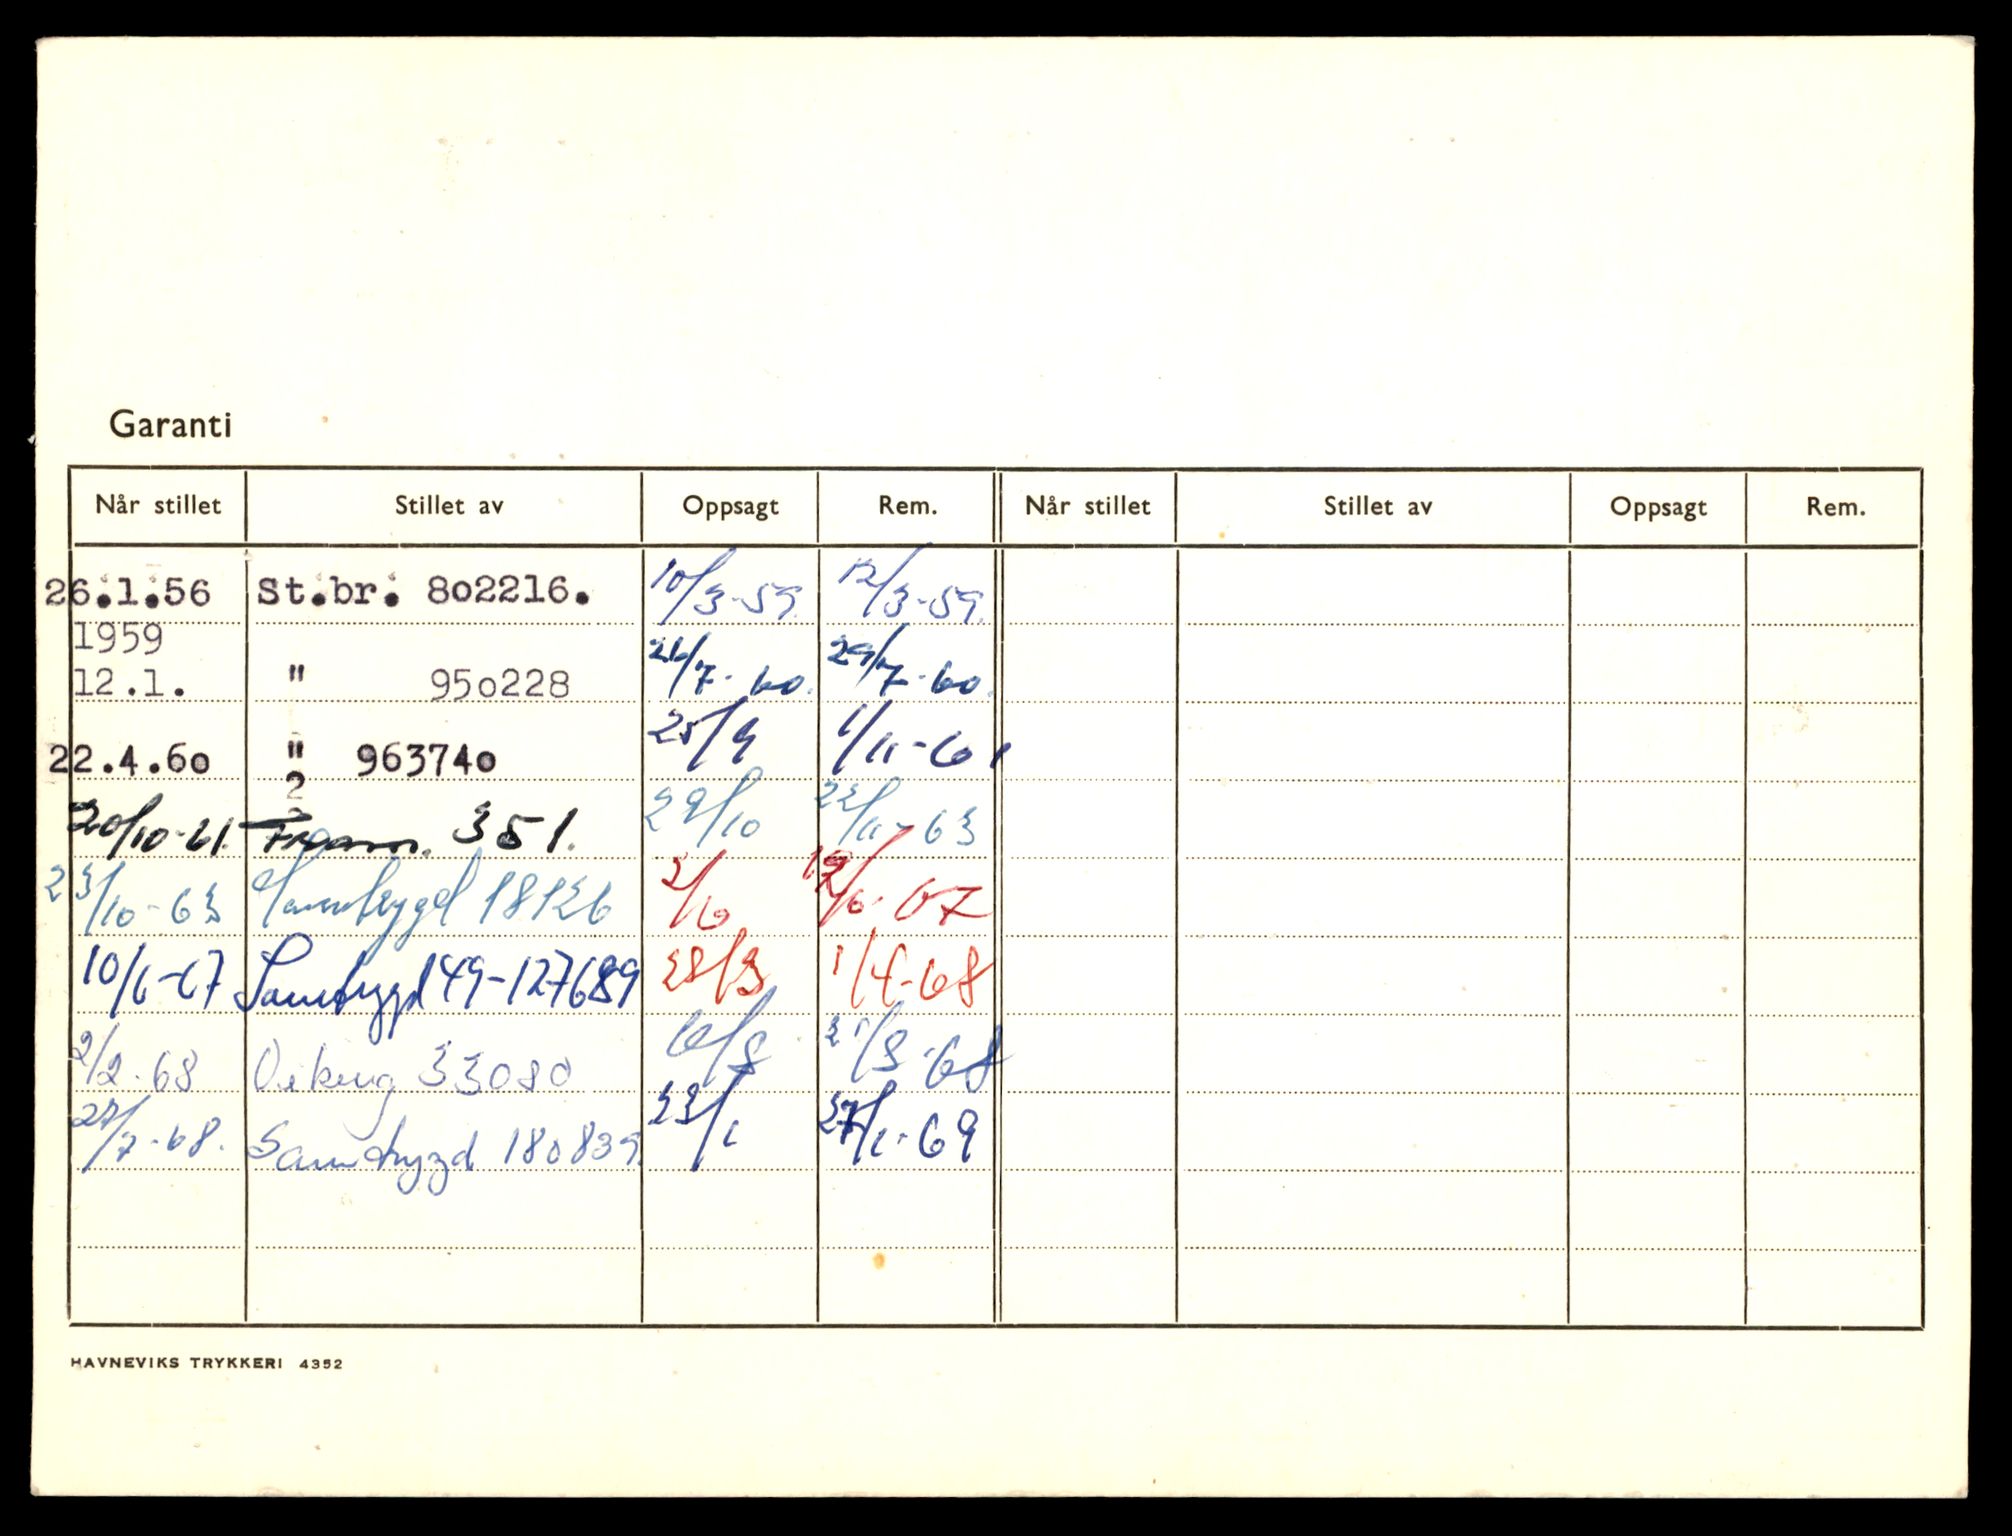 Garanti
Når stillet Stillet av Oppsagt Rem. Når stillet Stillet av Oppsagt Rem.
26.1.56 St.br. 802216. 10/3-59. 12/3-59.
1959
12.1. " 950228 26/7-60. 29/7-60.
22.4.60 " 963740 25/9 1/11-61
2
20/10-61. Fram. 351. 29/10 22/11-63
23/10-63 Samtrygd 18126 2/10 /6-67
10/6-67 Samtrygd 149-127689 28/3 1/4-68
2/2-68 Viking 33080 6/8 21/8-68
27/7-68. Samtrygd 180839 23/1 27/1-69
HAVNEVIKS TRYKKERI 4352